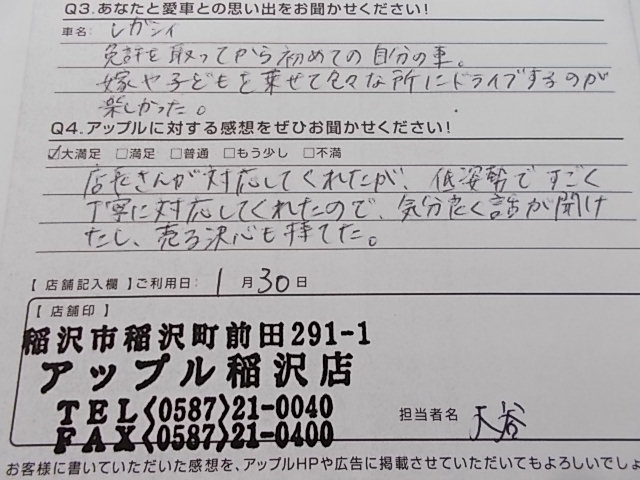 Q3.あなたと愛車との思い出をお聞かせください!
車名: レガシィ
免許を取ってから初めての自分の車。
嫁や子どもを乗せて色々な所にドライブするのが
楽しかった。
Q4.アップルに対する感想をぜひお聞かせください!
☑大満足 □満足 □普通 □もう少し □不満
店長さんが対応してくれたが、低姿勢ですごく
丁寧に対応してくれたので、気分良く話が聞け
たし、売る決心も持てた。
【 店舗記入欄 】ご利用日: 1 月 30 日
【 店舗印 】
稲沢市稲沢町前田291-1
アップル稲沢店
TEL〈0587〉21-0040
FAX〈0587〉21-0400
担当者名 大谷
お客様に書いていただいた感想を、アップルHPや広告に掲載させていただいてもよろしいでしょ